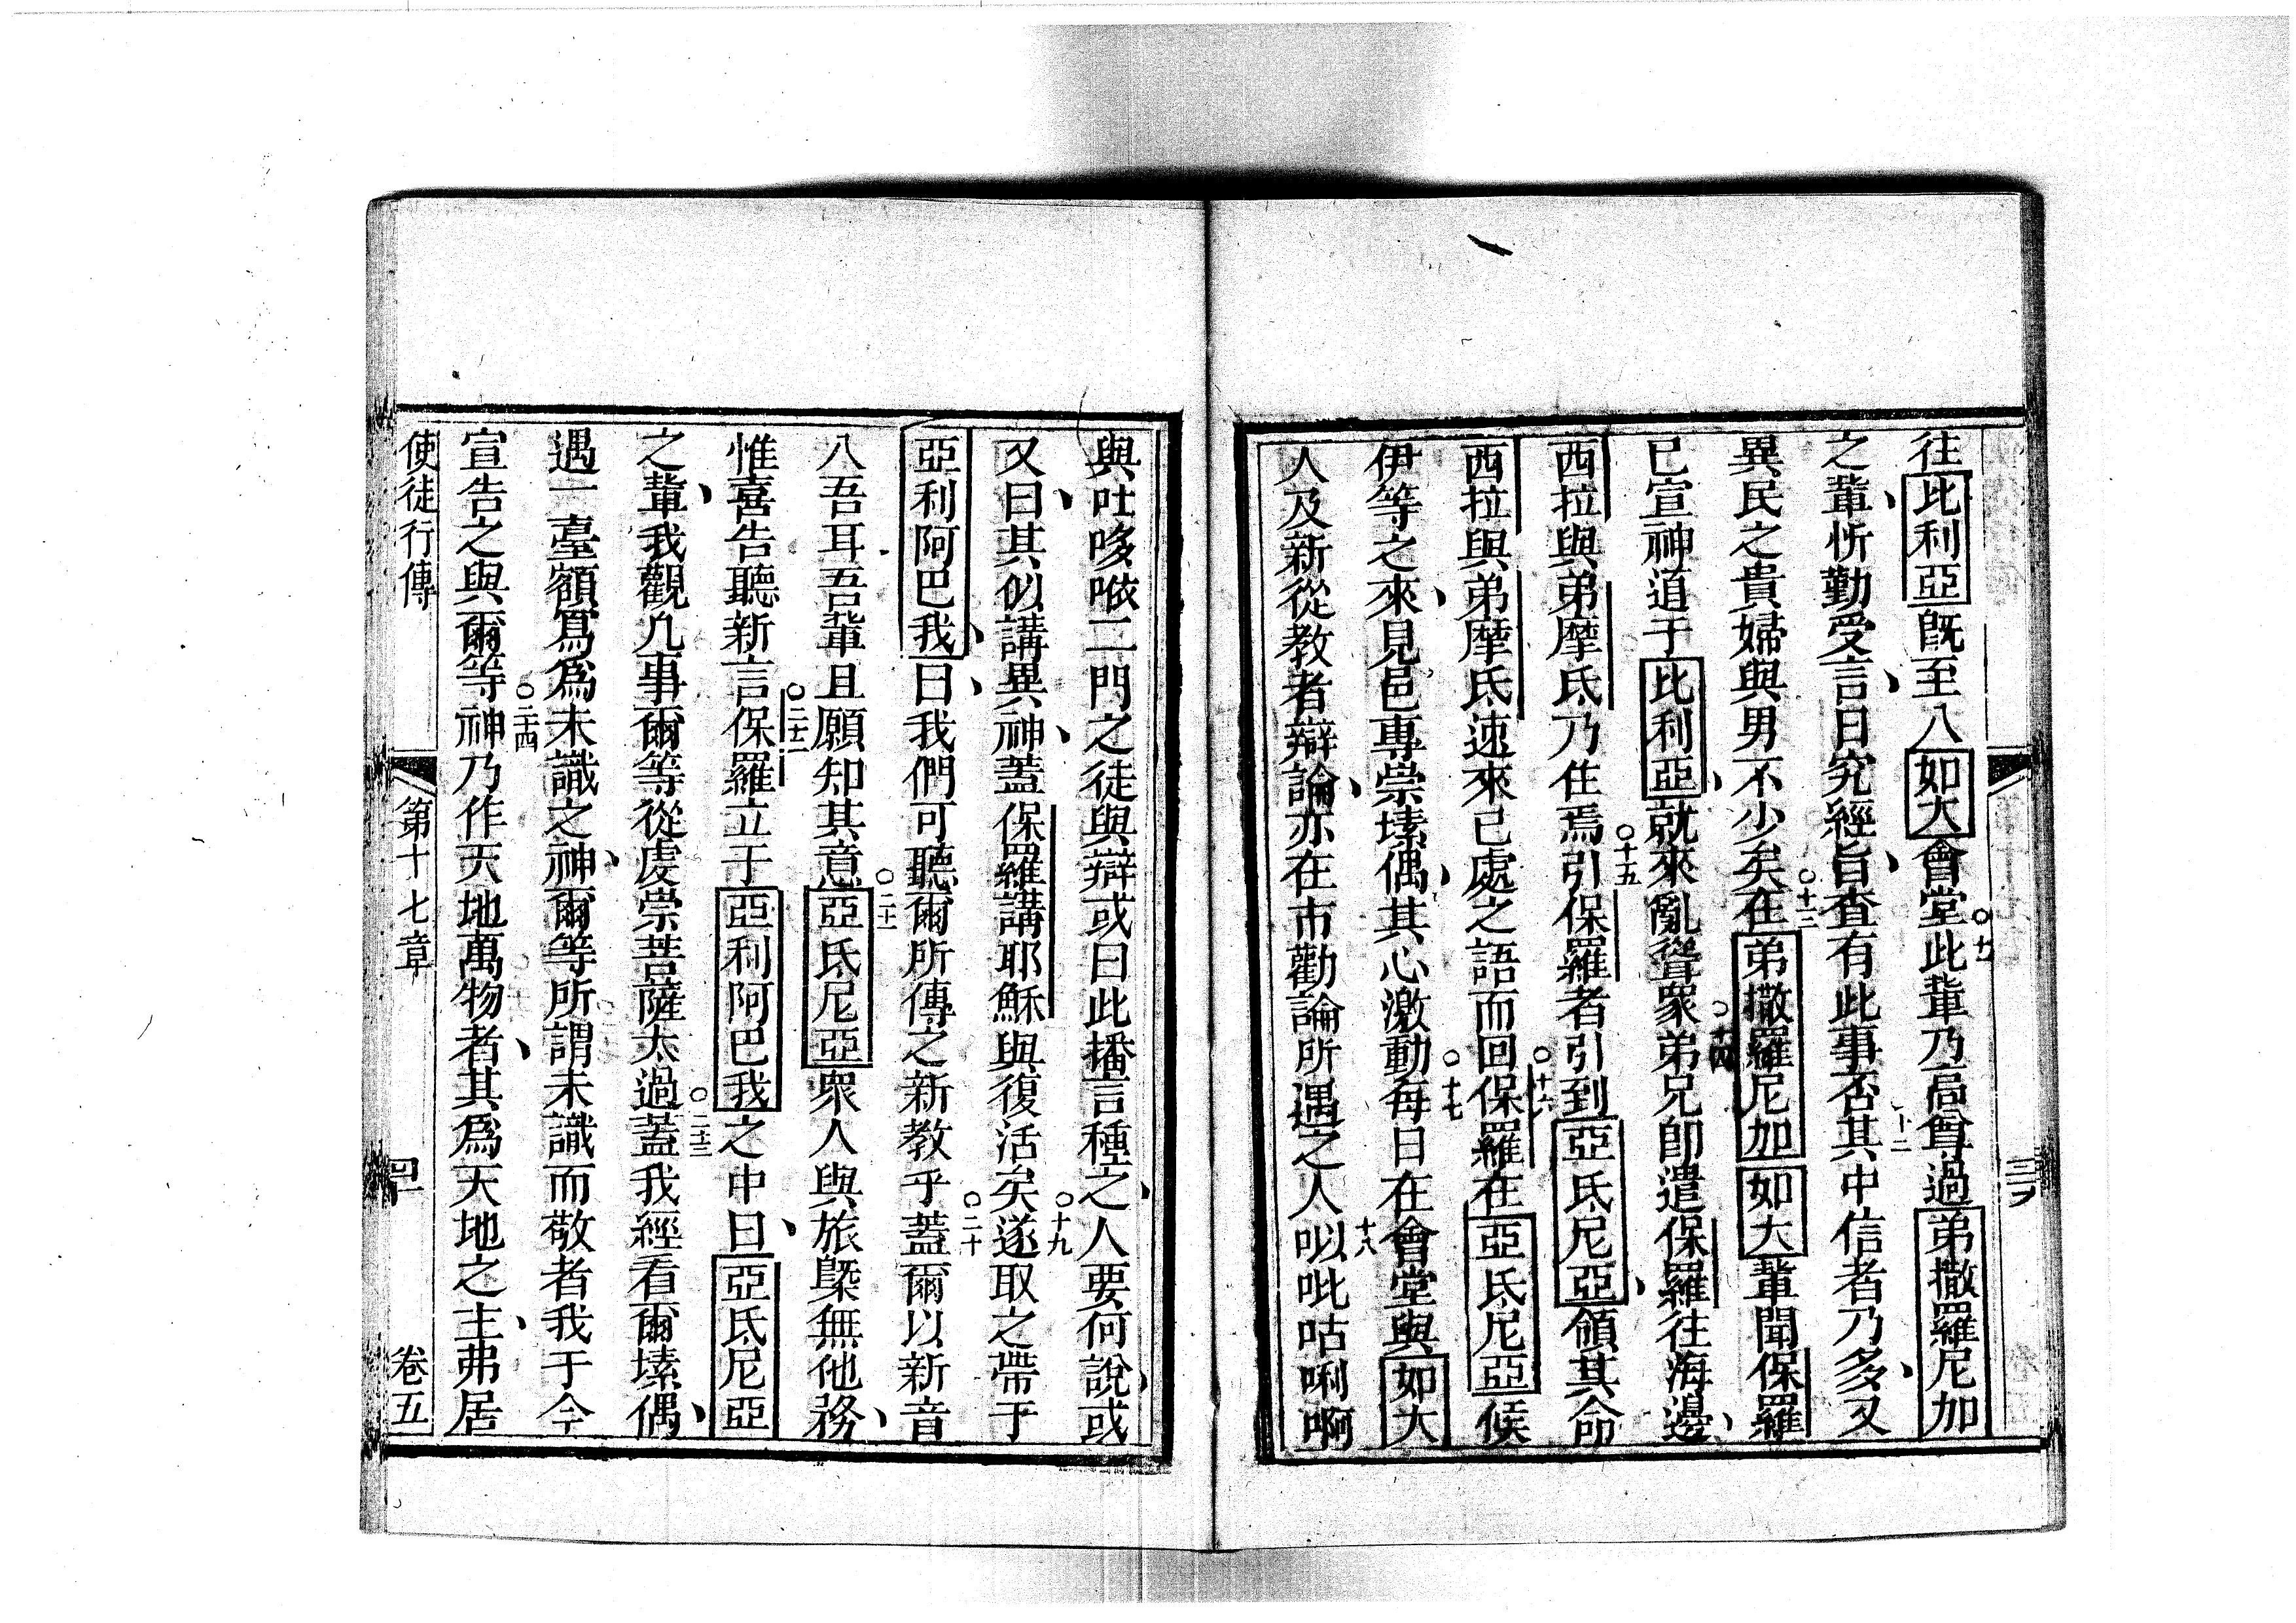 往比利亞既至入如大會堂此輩乃高尊過弟撒羅尼加
之輩忻勤受言日究經旨查有此事否其中信者乃多又
異民之貴婦與男不少矣在弟撒羅尼加如大輩聞保羅
已宣神道于比利亞就來亂聳衆弟兄卽遣保羅往海邊
西拉與弟摩氐乃住焉引保羅者引到亞氐尼亞領其命
西拉與弟摩氐速來已處之語而回保羅在亞氐尼亞候
伊等之來見邑專崇塐偶其心激動每日在會堂與如大
人及新從教者辯論亦在市勸論所遇之人以吡咕唎啊
與吐哆㗒二門之徒與辯或曰此播言種之人要何說或
又曰其似講異神蓋保羅講耶穌與復活矣遂取之帶于
亞利阿巴我曰我們可聽爾所傳之新教乎蓋爾以新音
入吾耳吾輩且願知其意亞氐尼亞衆人與旅㮣無他務
惟喜告聽新言保羅立于亞利阿巴我之中曰亞氐尼亞
之輩我觀凡事爾等從虔崇菩薩太過蓋我經看爾塐偶
遇一臺額寫爲未識之神爾等所謂未識而敬者我于今
宣告之與爾等神乃作天地萬物者其爲天地之主弗居
使徒行傳 第十七章 四 卷五